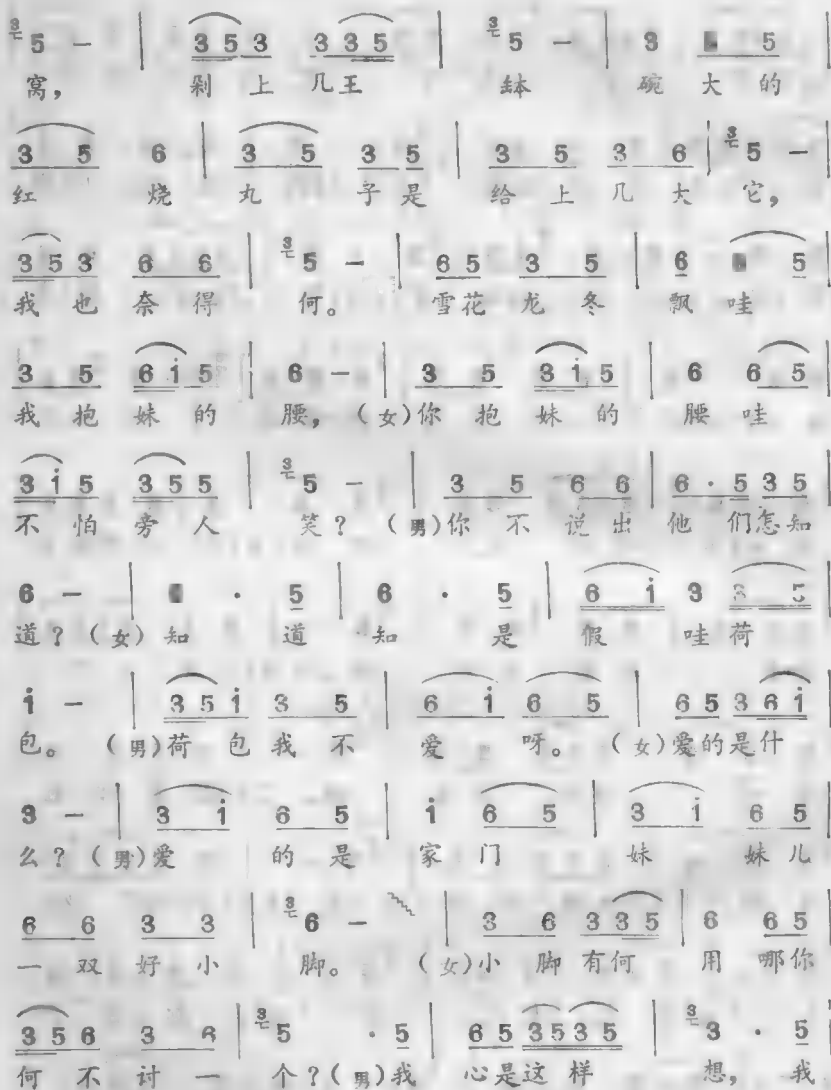 3 5 - | 3 5 3 3 3 5 | 3 5 - | 3 5 |
窝， 剁 上 几王 钵 碗 大 的
3 5 6 | 3 5 3 5 | 3 5 3 6 | 3 5 -
红 烧 丸 子 是 给 上 几 大 它，
3 5 3 6 6 | 3 5 - | 6 5 3 5 | 6 5
我 也 奈 得 何。 雪 花 龙 冬 飘 哇
3 5 6 i 5 | 6 - | 3 5 3 i 5 | 6 6 5
我 抱 妹 的 腰，（女）你 抱 妹 的 腰 哇
3 i 5 3 5 5 | 3 5 - | 3 5 6 6 | 6 · 5 3 5
不 怕 旁 人 笑？（男）你 不 说 出 他 们 怎 知
6 - | · 5 | 6 · 5 | 6 i 3 3 5
道？（女）知 道 知 是 假 哇 荷
i - | 3 5 i 3 5 | 6 i 6 5 | 6 5 3 6 i
包。（男）荷 包 我 不 爱 呀。（女）爱 的 是 什
3 - | 3 i 6 5 | i 6 5 | 3 i 6 5
么？（男）爱 的 是 家 门 妹 妹 儿
6 6 3 3 | 3 6 - | 3 6 3 3 5 | 6 6 5
一 双 好 小 脚。（女）小 脚 有 何 用 哪 你
3 5 6 3 6 | 3 5 · 5 | 6 5 3 5 3 5 | 3 3 · 5
何 不 讨 一 个？（男）我 心 是 这 样 想， 我